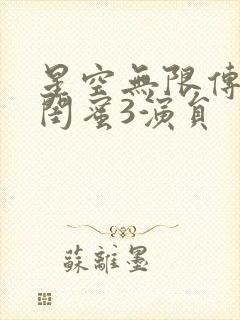 星空無限傳
閏蜜3演員
蘇離墨